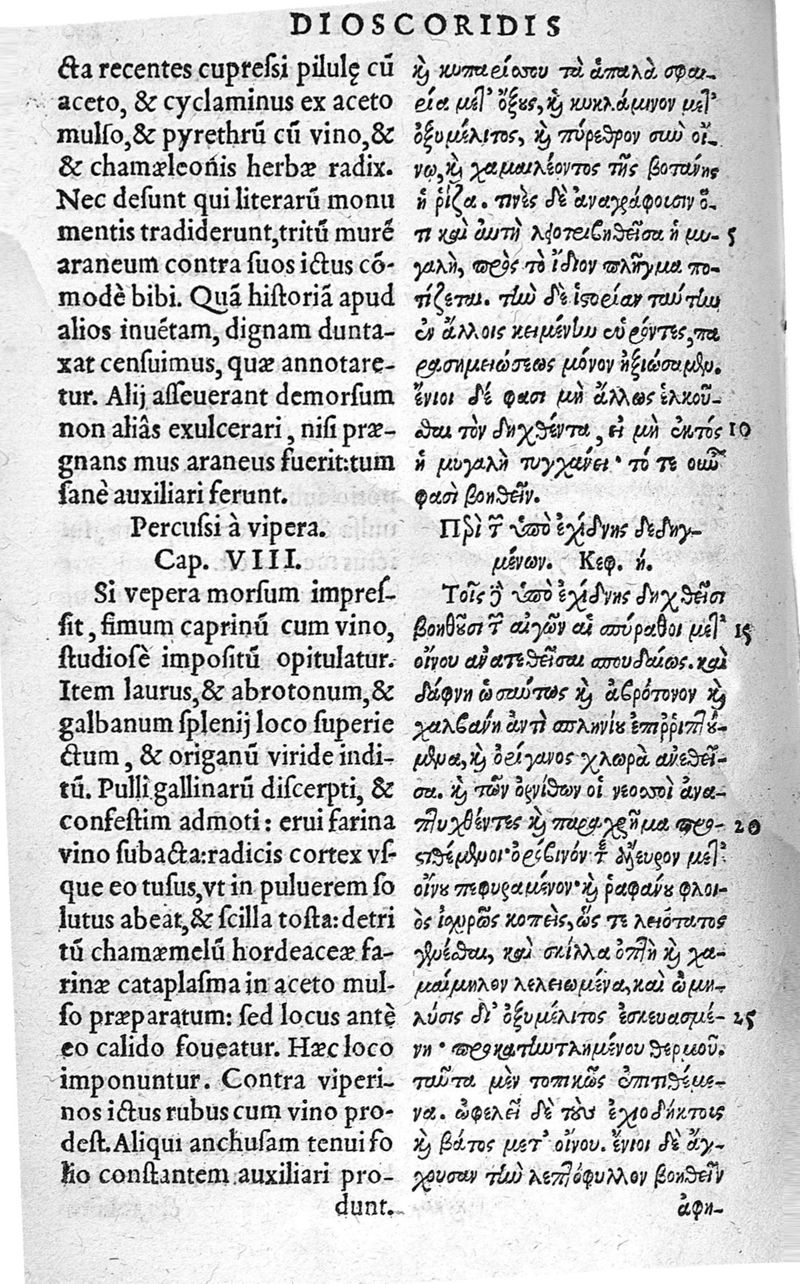 DIOSCORIDIS
cta recentes cupreſsi pilulę cū
aceto, & cyclaminus ex aceto
mulſo, & pyrethrū cū vino, &
& chamæleoñis herbæ radix.
Nec deſunt qui literarū monu
mentis tradiderunt, tritū murē
araneum contra ſuos ictus cō-
modè bibi. Quā hiſtoriā apud
alios inuētam, dignam dunta-
xat cenſuimus, quæ annotare-
tur. Alij aſſeuerant demorſum
non aliâs exulcerari, niſi præ-
gnans mus araneus fuerit: tum
ſanè auxiliari ferunt.
Percuſsi à vipera.
Cap. VIII.
Si vepera morſum impreſ-
ſit, fimum caprinū cum vino,
ſtudiosè impoſitū opitulatur.
Item laurus, & abrotonum, &
galbanum ſplenij loco ſuperie
ctum, & origanū viride indi-
tū. Pulli gallinarū diſcerpti, &
confeſtim admoti: erui farina
vino ſubacta: radicis cortex vſ-
que eo tuſus, vt in puluerem ſo
lutus abeat, & ſcilla toſta: detri
tū chamæmelū hordeaceæ fa-
rinæ cataplaſma in aceto mul-
ſo præparatum: ſed locus antè
eo calido foueatur. Hæc loco
imponuntur. Contra viperi-
nos ictus rubus cum vino pro-
deſt. Aliqui anchuſam tenui fo
lio conſtantem auxiliari pro-
dunt.
καὶ κυπαρίσσου τὰ ἁπαλὰ σφαι-
ρία μετ' ὄξους, καὶ κυκλάμινον μετ'
ὀξυμέλιτος, καὶ πύρεθρον σὺν οἴ-
νῳ, καὶ χαμαιλέοντος τῆς βοτάνης
ἡ ρίζα. τινὲς δὲ ἀναγράφουσιν ὅ-
τι καὶ αὐτὴ διατριβηθεῖσα ἡ μυ- 5
γαλῆ, πρὸς τὸ ἴδιον πλῆγμα πο-
τίζεται. τὴν δὲ ἱστορίαν ταύτην
ἐν ἄλλοις κειμένην εὑρόντες, πα
ρασημειώσεως μόνον ἠξιώσαμεν.
ἔνιοι δέ φασι μὴ ἄλλως ἑλκοῦ-
σθαι τὸν δηχθέντα, εἰ μὴ ἐκτός 10
ἡ μυγαλῆ τυγχάνει· τό τε οὖν
φασὶ βοηθεῖν.
Περὶ τῶν ὑπὸ ἐχίδνης δεδηγ-
μένων. Κεφ. ή.
Τοῖς δὲ ὑπὸ ἐχίδνης δηχθεῖσι
βοηθοῦσι τῶν αἰγῶν αἱ σπύραθοι μετ' 15
οἴνου ἀνατεθεῖσαι σπουδαίως. καὶ
δάφνη ὡσαύτως καὶ ἀβρότονον καὶ
χαλβάνη ἀντὶ σπληνίου ἐπιῤῥιπτού-
μενα, καὶ ὀρίγανος χλωρὰ ἀνεθεῖ-
σα. καὶ τῶν ὀρνίθων οἱ νεοσσοὶ ἀνα-
πτυχθέντες καὶ παραχρῆμα προσ- 20
τιθέμενοι· ὀρόβινόν τε ἄλευρον μετ'
οἴνου πεφυραμένον· καὶ ῥαφάνου φλοι-
ὸς ἰσχυρῶς κοπεὶς, ὥς τε λειότατος
γενέσθαι, καὶ σκίλλα ὀπτὴ καὶ χα-
μαίμηλον λελειωμένα, καὶ ὠμη-
λύσις δι' ὀξυμέλιτος ἐσκευασμέ- 25
νη· προκατηντλημένου θερμοῦ.
ταῦτα μὲν τοπικῶς ἐπιτιθέμε-
να. ὠφελεῖ δὲ τοὺς ἐχιοδήκτους
καὶ βάτος μετ' οἴνου. ἔνιοι δὲ ἄγ-
χουσαν τὴν λεπτόφυλλον βοηθεῖν
ἀφη-